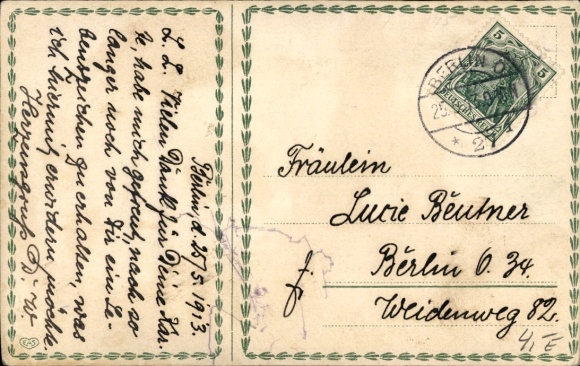 Berlin, d. 25/5. 1913.
L. L. Vielen Dank für Deine Kar-
te, habe mich gefreut, nach so
langer noch von Dir ein Le-
benszeichen zu erhalten, was
ich hiermit erwidern möchte.
Herzensgruß
BERLIN O.
25.
* 2
5
5
DEUTSCHES REICH
Fräulein
Lucie Beutner
f.
Berlin O. 34.
Weidenweg 82.
EAS